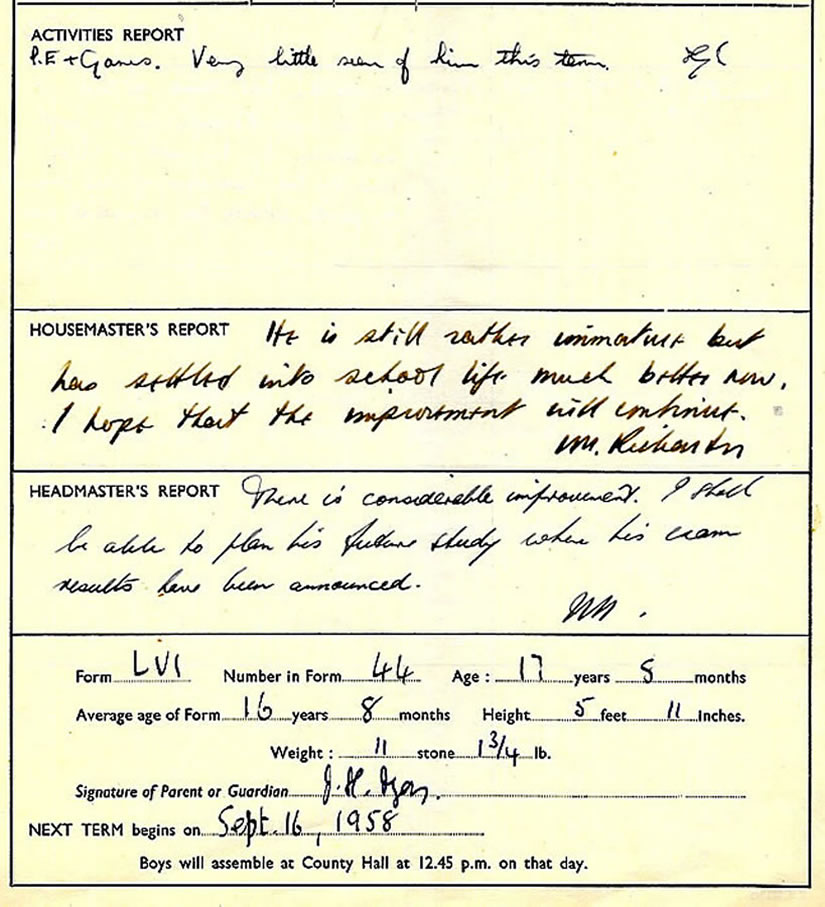 ACTIVITIES REPORT
P.E + Games. Very little seen of him this term.
HOUSEMASTER'S REPORT He is still rather immature but
has settled into school life much better now.
I hope that the improvement will continue.
HEADMASTER'S REPORT There is considerable improvement. I shall
be able to plan his future study when his exam
results have been announced.
Form LVI Number in Form 44 Age : 17 years months
Average age of Form 16 years 8 months Height 5 feet 11 Inches.
Weight : 11 stone 1 3/4 lb.
Signature of Parent or Guardian J. H.
NEXT TERM begins on Sept. 16, 1958
Boys will assemble at County Hall at 12.45 p.m. on that day.